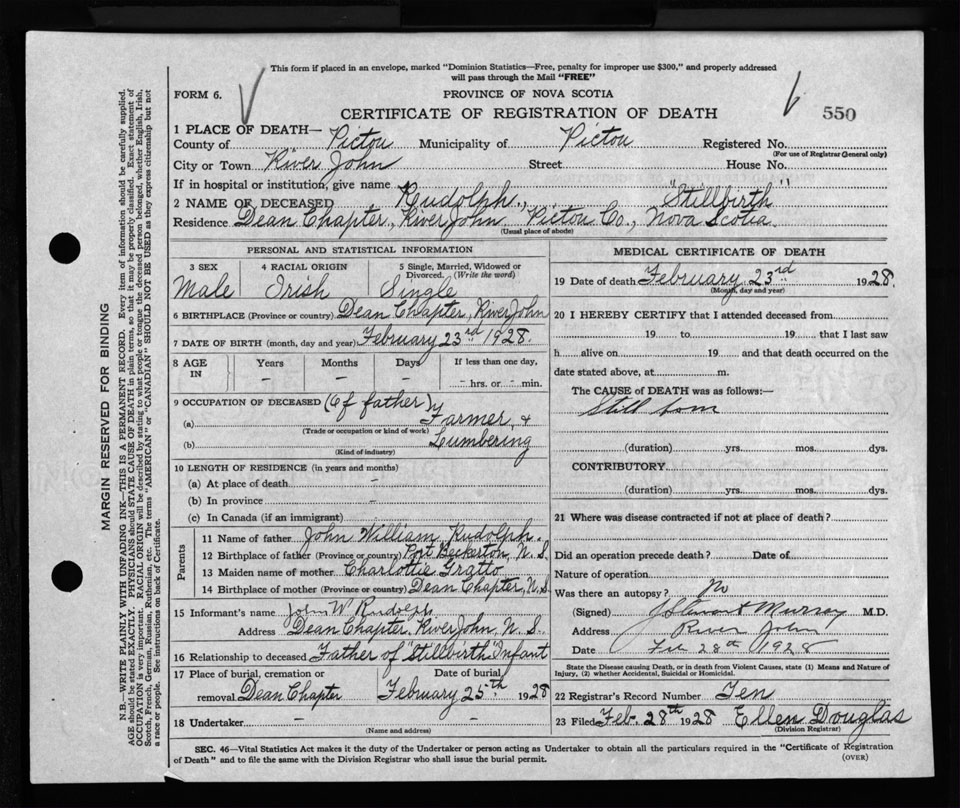 This form if placed in an envelope, marked "Dominion Statistics—Free, penalty for improper use $300," and properly addressed
will pass through the Mail "FREE"
FORM 6.
PROVINCE OF NOVA SCOTIA
CERTIFICATE OF REGISTRATION OF DEATH
550
1 PLACE OF DEATH—
County of Pictou Municipality of Pictou Registered No.
(For use of Registrar General only)
City or Town River John Street House No.
If in hospital or institution, give name
2 NAME OF DECEASED Rudolph, "Stillbirth"
Residence Dean Chapter, River John, Pictou Co., Nova Scotia.
(Usual place of abode)
PERSONAL AND STATISTICAL INFORMATION
3 SEX 4 RACIAL ORIGIN 5 Single, Married, Widowed or
Divorced. (Write the word)
Male Irish Single
6 BIRTHPLACE (Province or country) Dean Chapter, River John
7 DATE OF BIRTH (month, day and year) February 23rd 1928.
8 AGE IN Years Months Days If less than one day,
- - - - hrs. or - min.
9 OCCUPATION OF DECEASED (Of father)
(a) Farmer, &
(Trade or occupation or kind of work)
(b) Lumbering
(Kind of industry)
10 LENGTH OF RESIDENCE (in years and months)
(a) At place of death -
(b) In province -
(c) In Canada (if an immigrant)
Parents
11 Name of father John William Rudolph.
12 Birthplace of father (Province or country) Port Beckerton, N.S.
13 Maiden name of mother Charlottie Gratto
14 Birthplace of mother (Province or country) Dean Chapter, N.S
15 Informant's name John W Rudolph
Address Dean Chapter, River John, N.S.
16 Relationship to deceased Father of "Stillbirth" Infant
17 Place of burial, cremation or Date of burial
removal Dean Chapter February 25th. 1928
18 Undertaker - -
(Name and address)
MEDICAL CERTIFICATE OF DEATH
19 Date of death February 23rd 1928.
(Month, day and year)
20 I HEREBY CERTIFY that I attended deceased from
19 to 19, that I last saw
h alive on 19 and that death occurred on the
date stated above, at m.
The CAUSE of DEATH was as follows:—
Still born
(duration) yrs. mos. dys.
CONTRIBUTORY
(duration) yrs. mos. dys.
21 Where was disease contracted if not at place of death?
Did an operation precede death? Date of
Nature of operation
Was there an autopsy? No
(Signed) J Stewart Murray M.D.
Address River John
Date Feb 28th 1928
State the Disease causing Death, or in death from Violent Causes, state (1) Means and Nature of
Injury, (2) whether Accidental, Suicidal or Homicidal.
22 Registrar's Record Number Ten
23 Filed Feb. 28th 1928 Ellen Douglas
(Division Registrar)
SEC. 46—Vital Statistics Act makes it the duty of the Undertaker or person acting as Undertaker to obtain all the particulars required in the "Certificate of Registration
of Death" and to file the same with the Division Registrar who shall issue the burial permit.
(OVER)
MARGIN RESERVED FOR BINDING
N.B.—WRITE PLAINLY WITH UNFADING INK—THIS IS A PERMANENT RECORD. Every item of information should be carefully supplied.
AGE should be stated EXACTLY. PHYSICIANS should STATE CAUSE OF DEATH in plain terms, so that it may be properly classified. Exact statement of
OCCUPATION is very important. RACIAL ORIGIN will be described by stating to what people or tongue the deceased person belonged, whether English, Irish,
Scotch, French, German, Russian, Ruthenian, etc. The terms "AMERICAN" or "CANADIAN" SHOULD NOT BE USED as they express citizenship but not
a race or people. See instructions on back of Certificate.